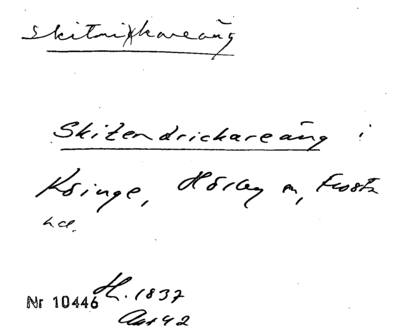 Skitnixkareäng
Skitendrickareäng i
Köinge, Hörby m, Frosta
hd.
Nr 10446 H. 1837
Aas 42